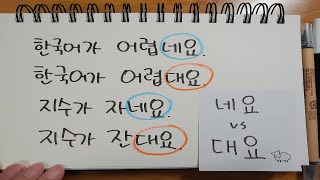 한국어가 어렵네요.
한국어가 어렵대요.
지수가 자네요.
지수가 잔대요.
네요
vs
대요